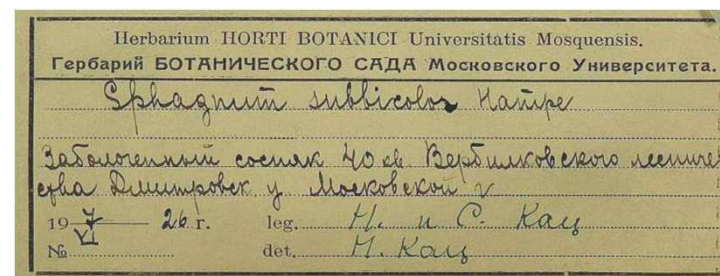 Herbarium HORTI BOTANICI Universitatis Mosquensis.
Гербарий БОТАНИЧЕСКОГО САДА Московского Университета.
Sphagnum subbicolor Hampe
Заболоченный сосняк 40 кв. Вербилковского лесниче
ства Дмитровск у. Московской г
19 7/VI 26 г. leg. Н. и С. Кац
№ det. Н. Кац